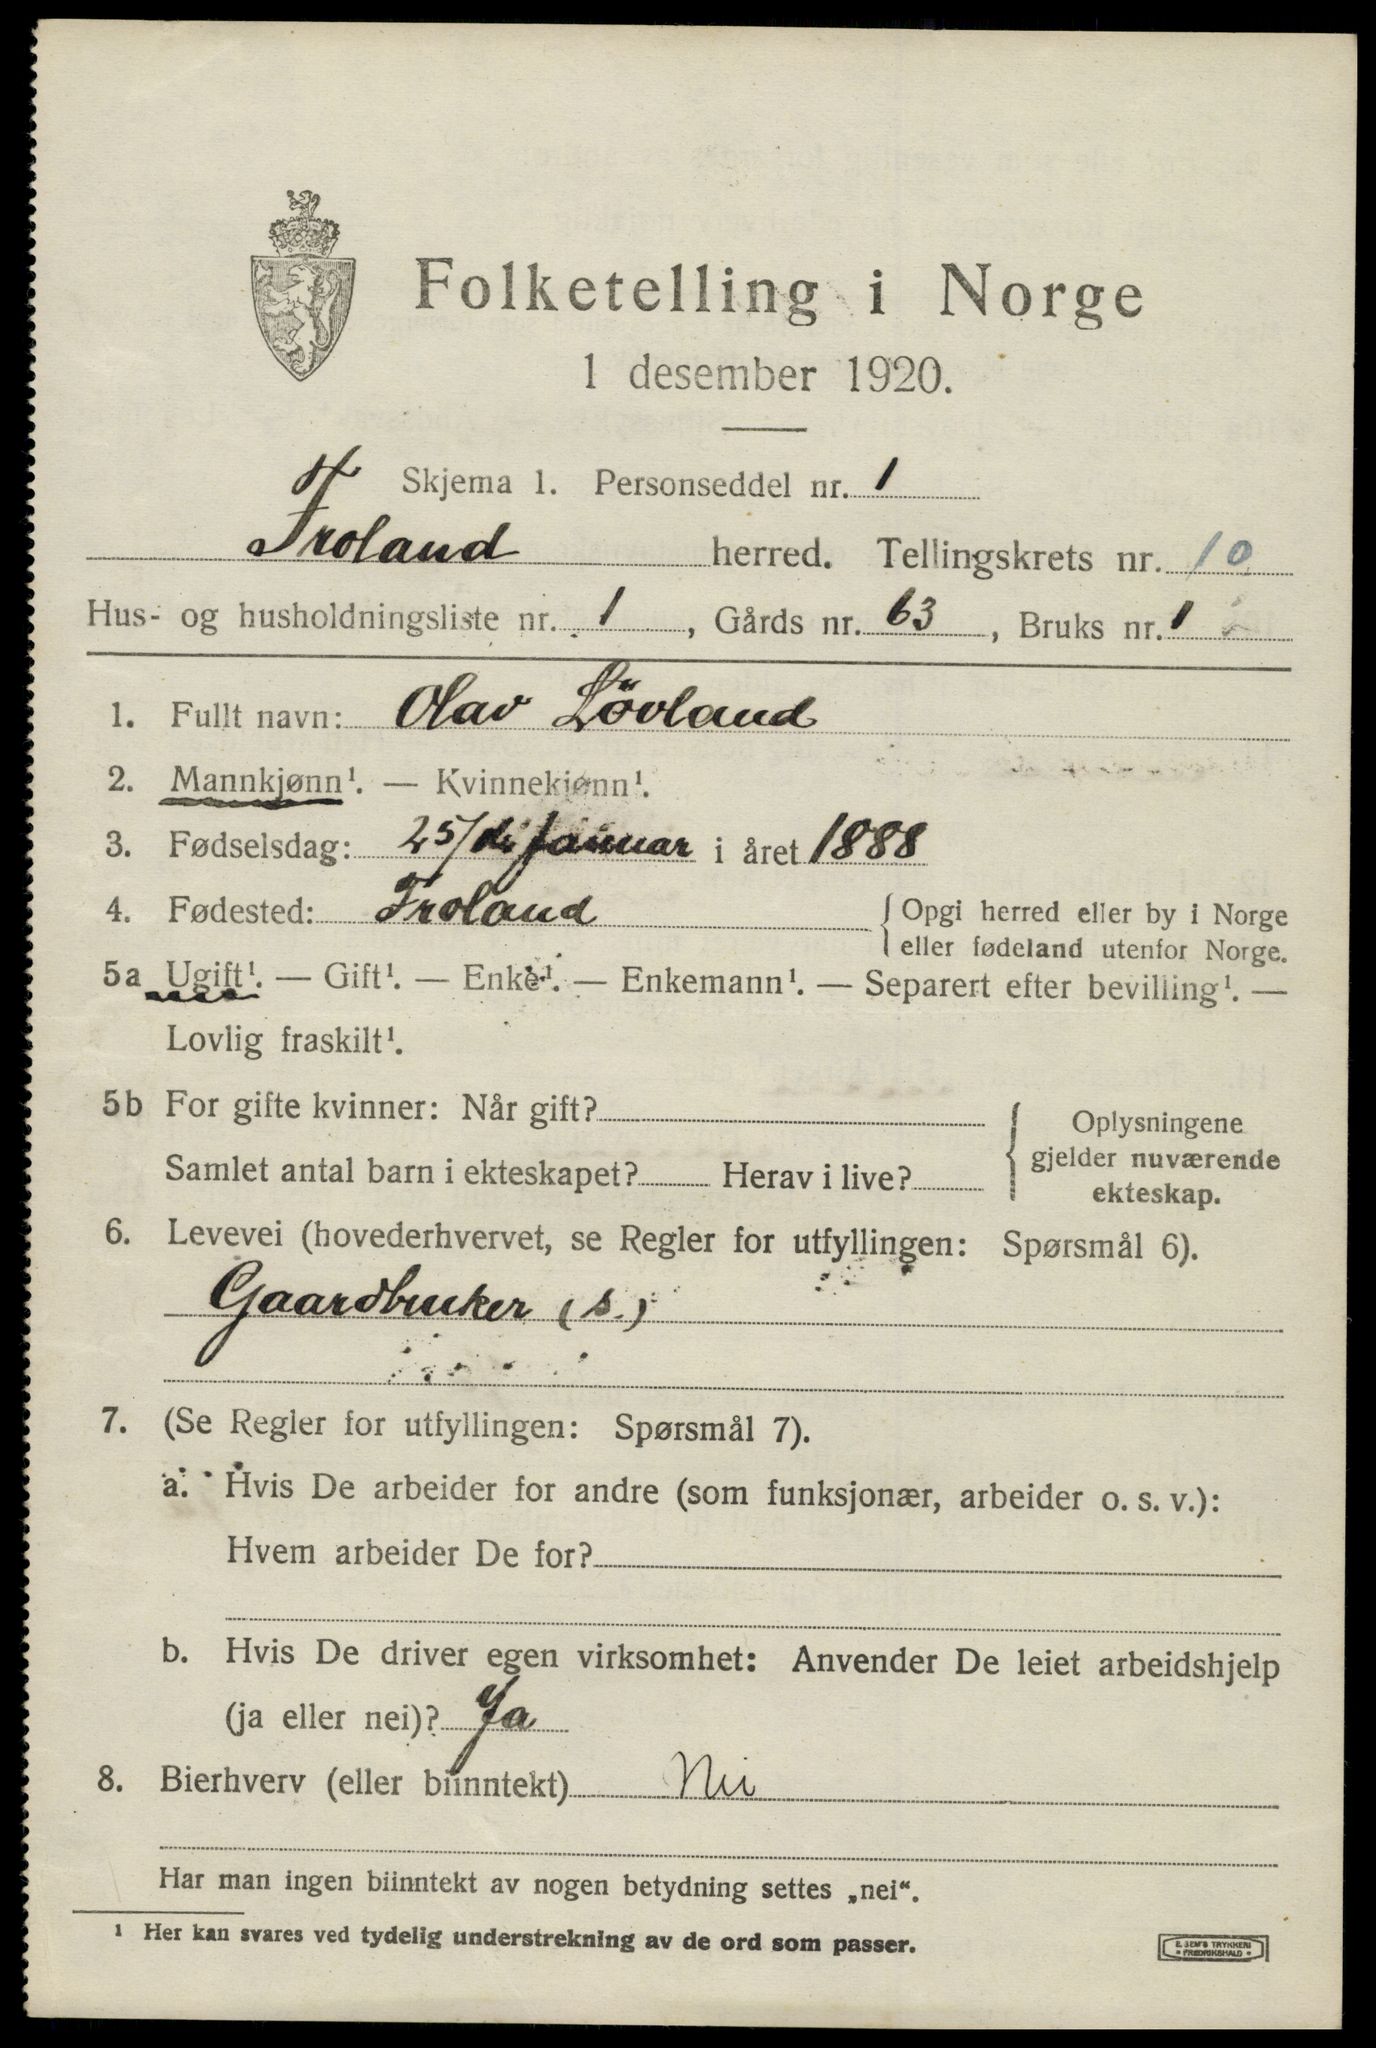 Folketelling i Norge
1 desember 1920.
Skjema 1. Personseddel nr. 1
Froland herred. Tellingskrets nr. 10
Hus- og husholdningsliste nr. 1, Gårds nr. 63, Bruks nr. 1
1. Fullt navn: Olav Lövland
2. Mannkjønn¹. — Kvinnekjønn¹.
3. Fødselsdag: 25/de januar i året 1888
4. Fødested: Froland {Opgi herred eller by i Norge
eller fødeland utenfor Norge.
5a Ugift¹. — Gift¹. — Enke¹. — Enkemann¹. — Separert efter bevilling¹. —
Lovlig fraskilt¹.
5b For gifte kvinner: Når gift? {Oplysningene
gjelder nuværende
ekteskap.
Samlet antal barn i ekteskapet? Herav i live?
6. Levevei (hovederhvervet, se Regler for utfyllingen: Spørsmål 6).
Gaardbruker (s.)
7. (Se Regler for utfyllingen: Spørsmål 7).
a. Hvis De arbeider for andre (som funksjonær, arbeider o. s. v.):
Hvem arbeider De for?
b. Hvis De driver egen virksomhet: Anvender De leiet arbeidshjelp
(ja eller nei)? Ja
8. Bierhverv (eller biinntekt) Nei
Har man ingen biinntekt av nogen betydning settes „nei“.
¹ Her kan svares ved tydelig understrekning av de ord som passer.
E. SEM'S TRYKKERI
FREDRIKSHALD